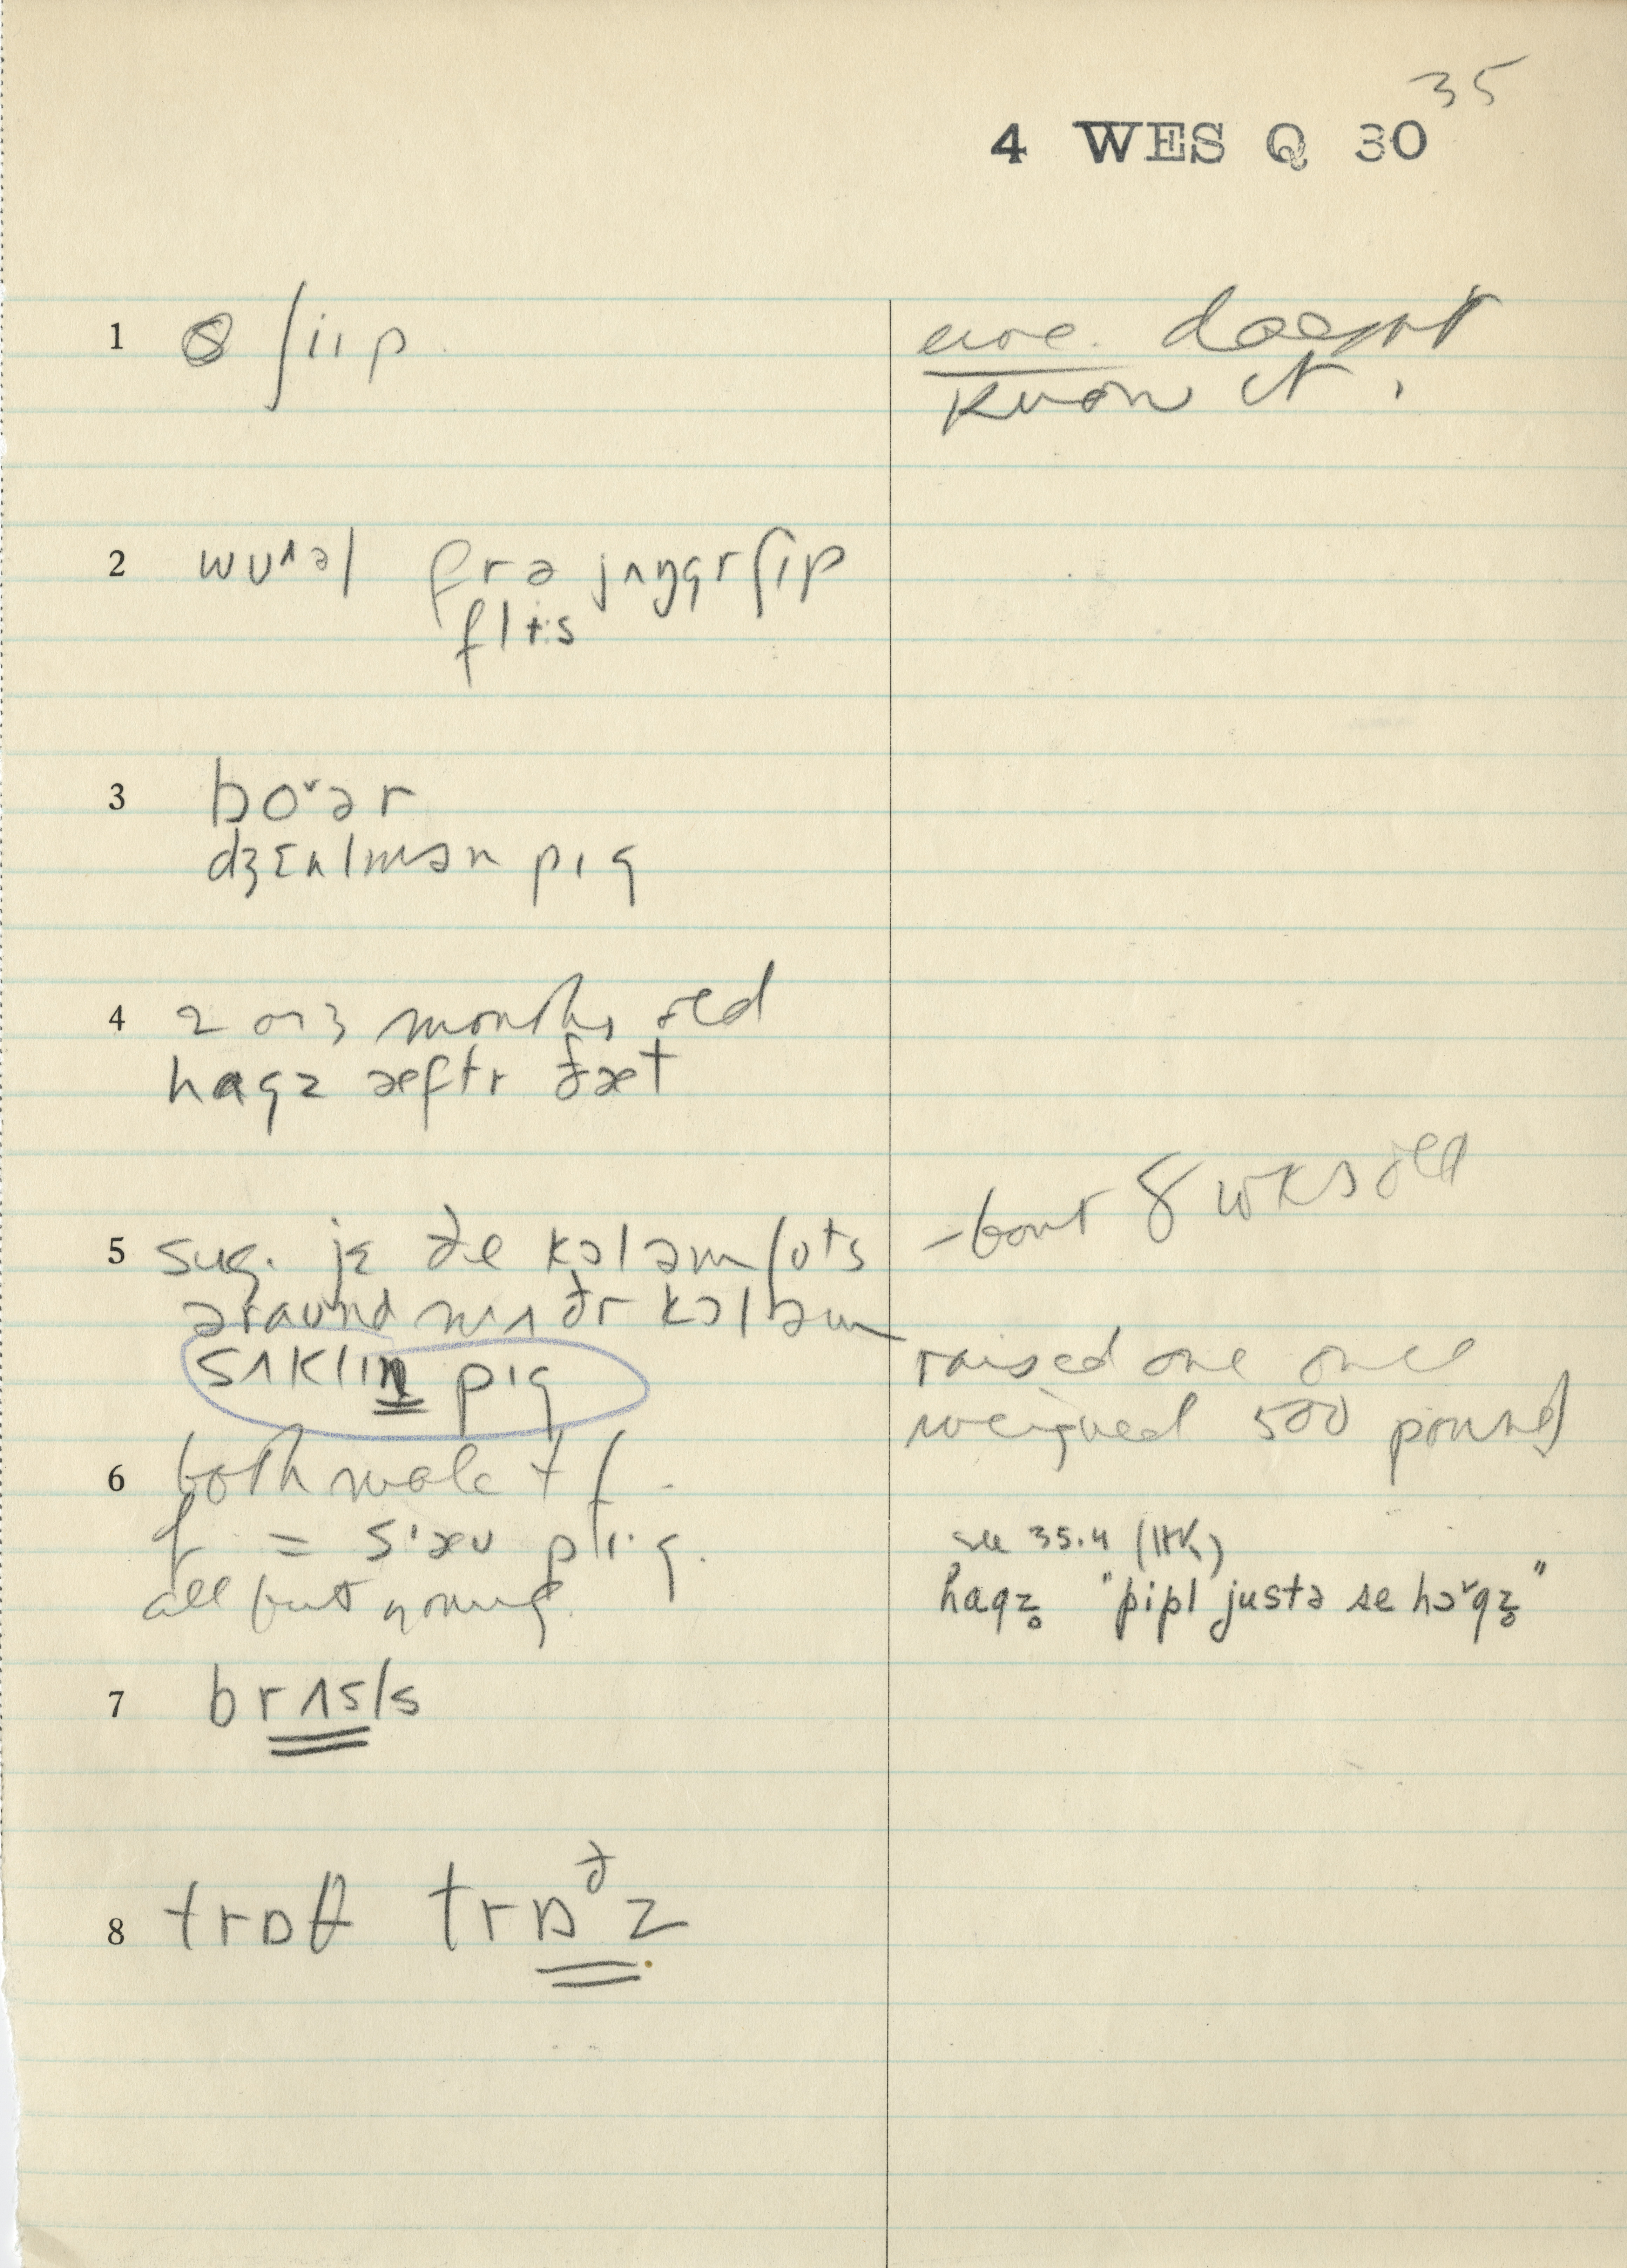 35
4 WES Q 30
1 ʃiip
ewe. doesnt
know it.
2 wʊ^əl frə jʌŋgr ʃip
flɨ:s
3 bo˅ər
dʒɛnlmən pɪg
4 2 or 3 months old
hagz æftr ðæt
-bout 8 wks old
5 sug. jɛ ðe kɔləm ʃots
əraʊnd nʌðr kɔləm
sʌklɪn pɪg
raised one once
weighed 500 pounds
6 both male + f.
f = s'æʊ pɪg.
all but young.
see 35.4 (HK)
hagz̥ "pipl justə se hɔ˅gz̥"
7 brɪsls
8 trɒθ trɒðz